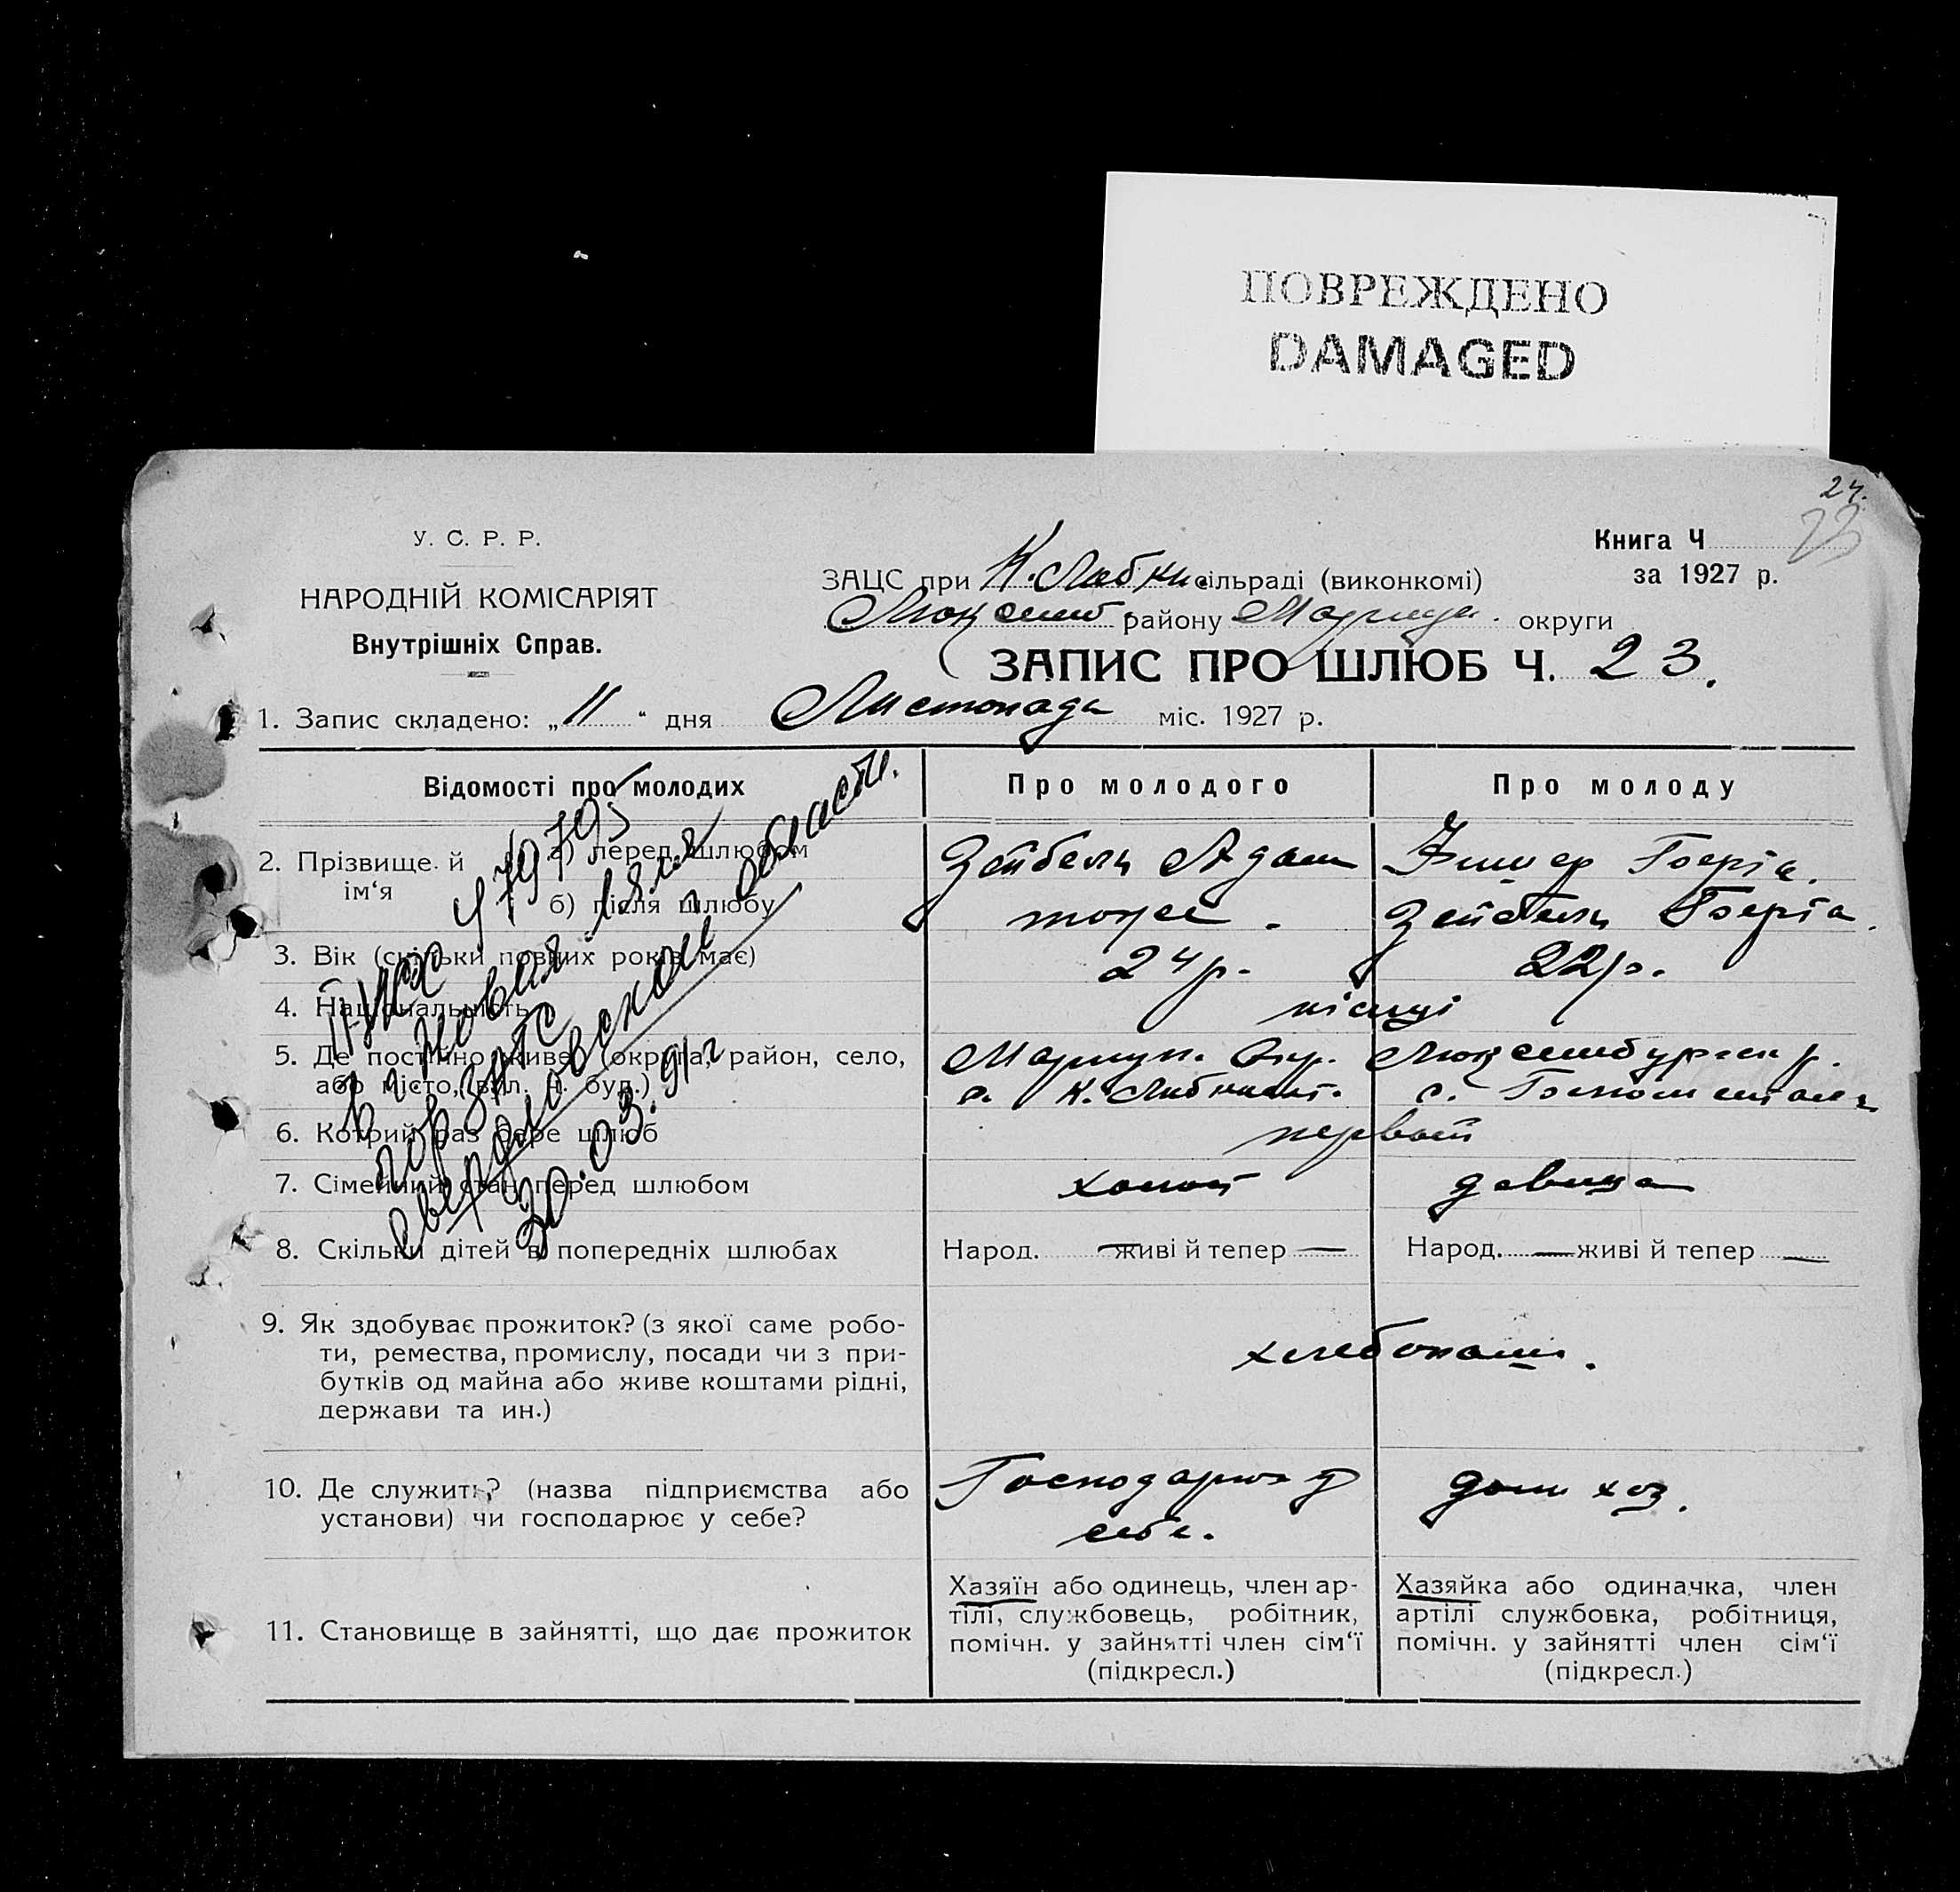 ПОВРЕЖДЕНО
DAMAGED
24.
23
У. С. Р. Р.
НАРОДНІЙ КОМІСАРІЯТ
Внутрішніх Справ.
Книга Ч
за 1927 р.
ЗАЦС при К. Либкн сільраді (виконкомі)
Люксемб. району Маріуп. округи
ЗАПИС ПРО ШЛЮБ Ч. 23.
1. Запис складено: „11“ дня Листопада міс. 1927 р.
Відомості про молодих
Про молодого
Про молоду
2. Прізвище й ім‘я
а) перед шлюбом
Зейбель Адам
Фишер Берта.
б) після шлюбу
тоже.
Зейбель Берта.
3. Вік (скільки повних років має)
24 р.
22 р.
4. Національність
німці
5. Де постійно живе (округа, район, село,
або місто, вул. ч. буд.)
Мариуп. Окр. Люксембургск р.
с. К. Либкнехт.
с.
6. Котрий раз бере шлюб
первый
7. Сімейний стан перед шлюбом
холост
девица
8. Скільки дітей в попередніх шлюбах
Народ. — живі й тепер —
Народ. — живі й тепер —
9. Як здобуває прожиток? (з якої саме робо-
ти, ремества, промислу, посади чи з при-
бутків од майна або живе коштами рідні,
держави та ин.)
хлебопаш.
10. Де служить? (назва підприємства або
установи) чи господарює у себе?
Господарює у
себе.
дом хоз.
11. Становище в зайнятті, що дає прожиток
Хазяїн або одинець, член ар-
тілі, службовець, робітник,
помічн. у зайнятті член сім‘ї
(підкресл.)
Хазяйка або одиначка, член
артілі службовка, робітниця,
помічн. у зайнятті член сім‘ї
(підкресл.)
479795
в г. Новая Ляля
гор ЗАГС
свердловской области.
30.03.91г